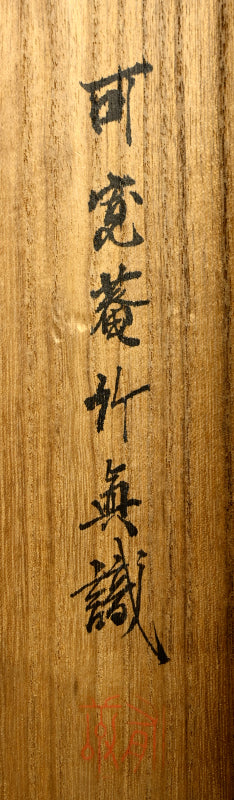 可寛菴竹眞識